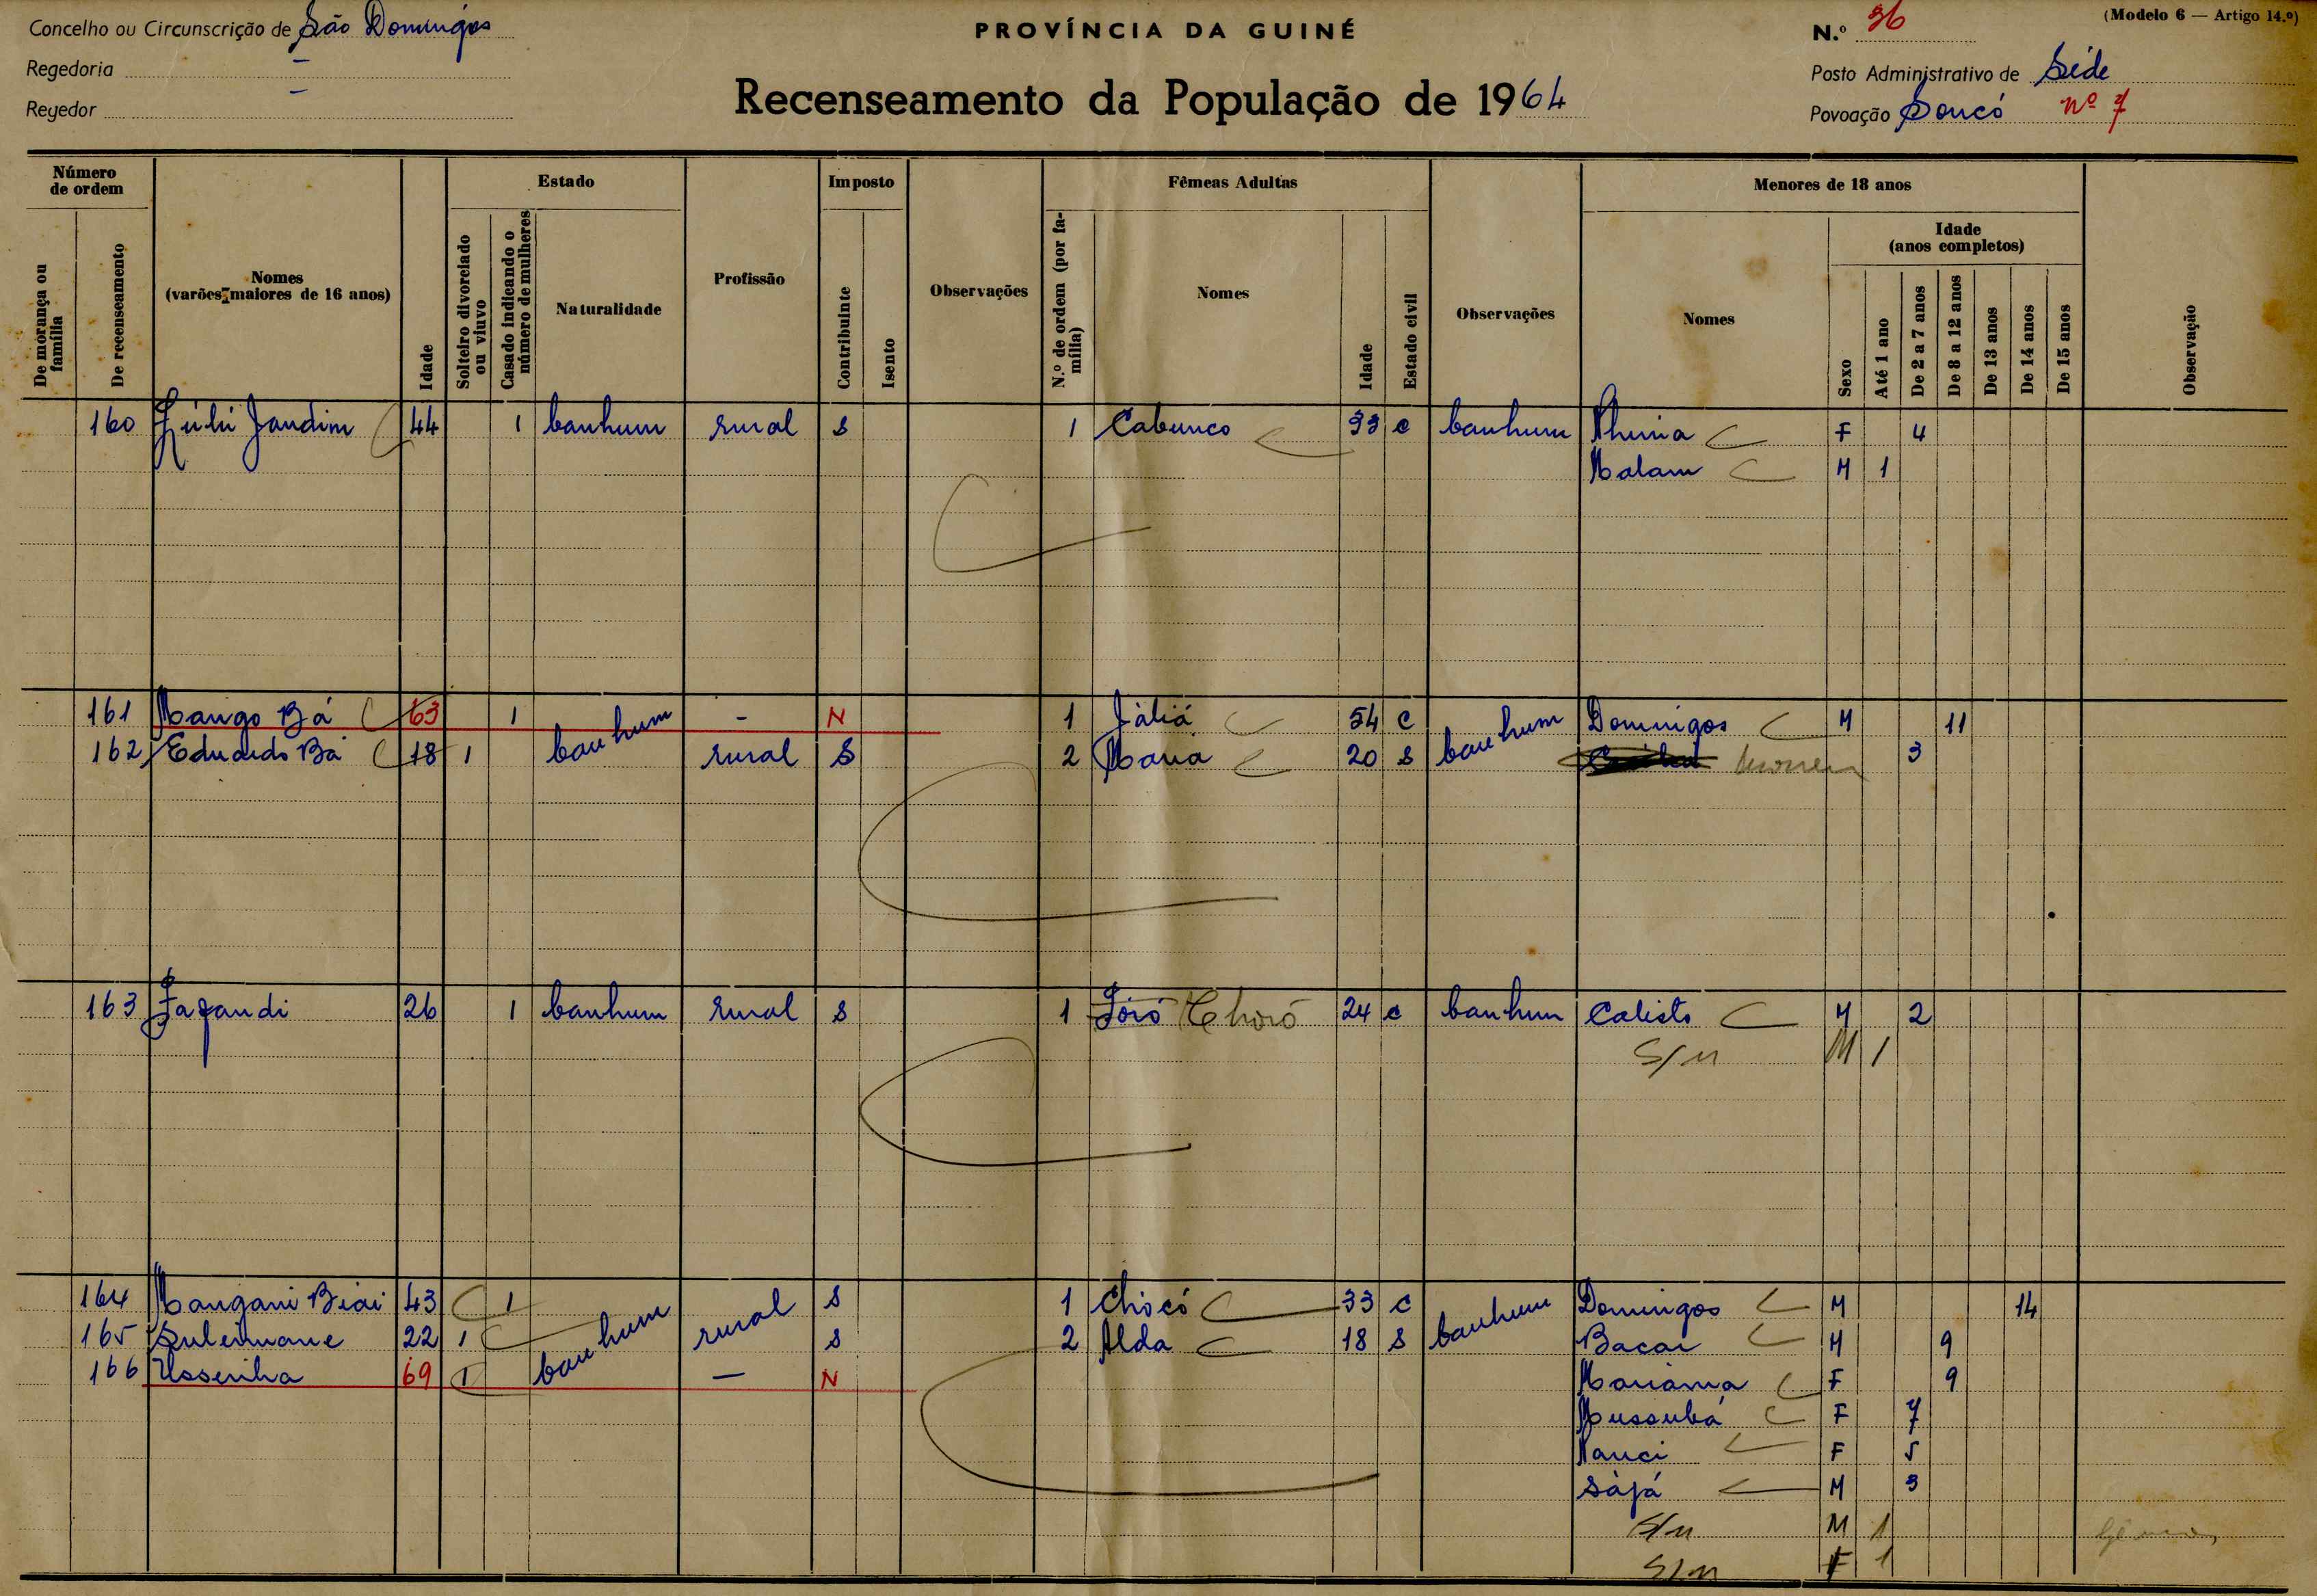 Concelho ou Circunscrição de São Domingos
Regedoria –
Regedor –
PROVÍNCIA DA GUINÉ
Recenseamento da População de 1964
(Modelo 6 — Artigo 14.º)
N.º 36
Posto Administrativo de Séde
Povoação Soucó Nº 7
Número de ordem
De morança ou família
De recenseamento
Nomes (varões maiores de 16 anos)
Idade
Estado
Solteiro divorciado ou viuvo
Casado indicando o número de mulheres
Naturalidade
Profissão
Imposto
Contribuinte
Isento
Observações
Fêmeas Adultas
N.º de ordem (por família)
Nomes
Idade
Estado civil
Observações
Menores de 18 anos
Nomes
Sexo
Idade (anos completos)
Até 1 ano
De 2 a 7 anos
De 8 a 12 anos
De 13 anos
De 14 anos
De 15 anos
Observação
160 Jandim 44 1 banhum rural S 1 Cabunco 33 C banhum F 4
Malam M 1
161 Mango Bá 63 1 banhum – N 1 Jáliá 54 C banhum Domingos M 11
162 Eduardo Bá 18 1 rural S 2 Maria 20 S 3
163 26 1 banhum rural S 1 Choró 24 C banhum Calisto M 2
S/n M 1
164 Mangani Biai 43 1 banhum rural S 1 Chocó 33 C banhum Domingos M 14
165 Suleimane 22 1 S 2 Alda 18 S Bacar M 9
166 69 1 – N Mariama F 9
Mussubá F 7
Nanci F 5
Sájá M 3
S/n M 1
S/n F 1